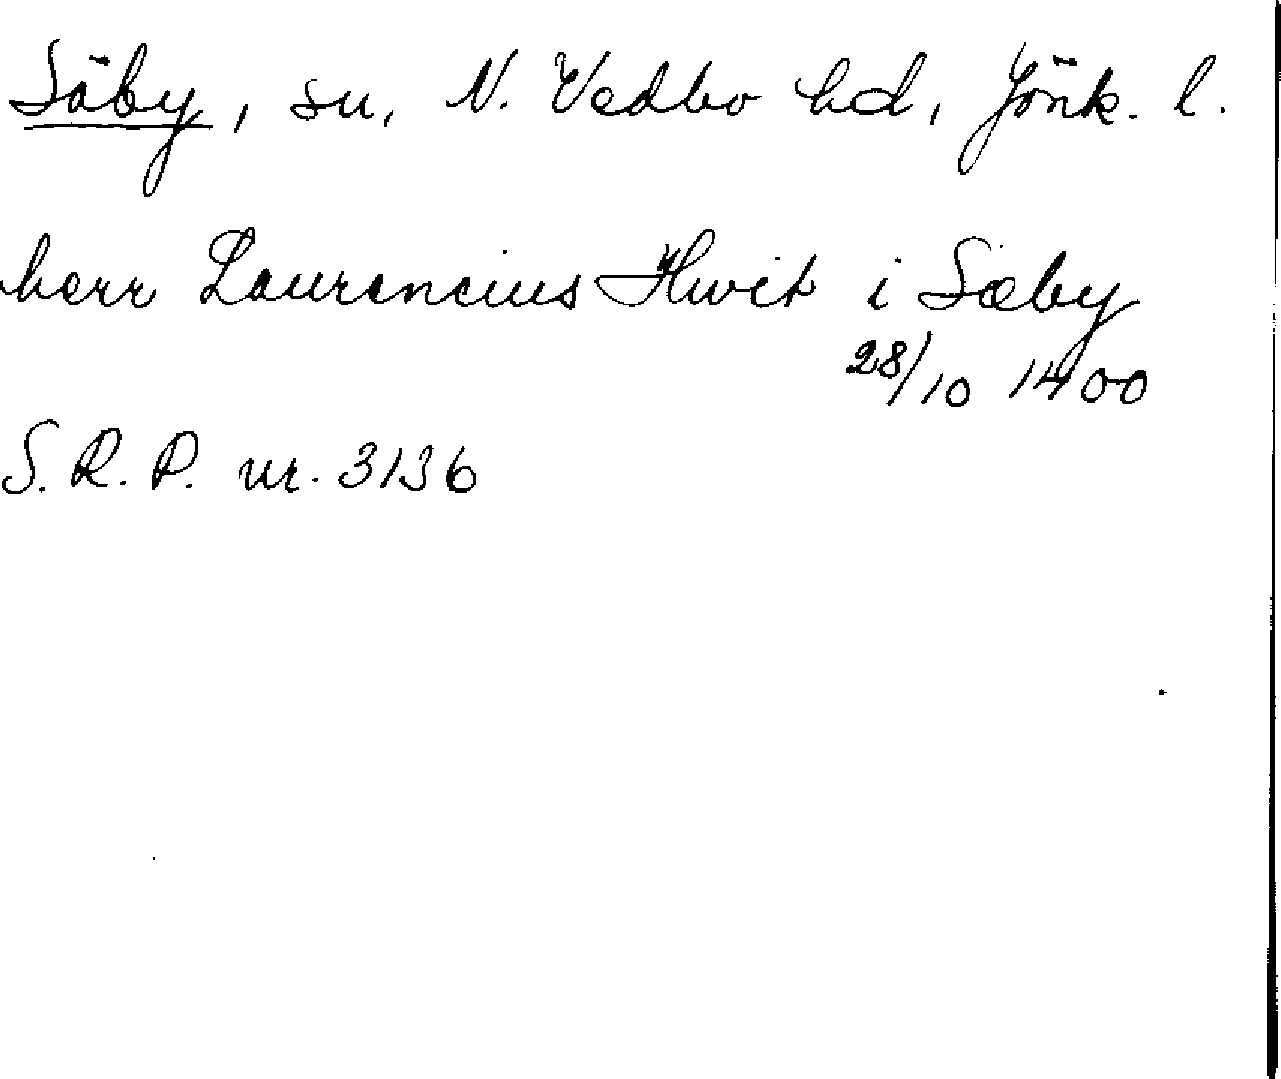 Säby, sn, N. Vedbo hd, Jönk. l.
herr Laurencius Hwit i Sæby
28/10 1400
S. R. P. nr. 3136